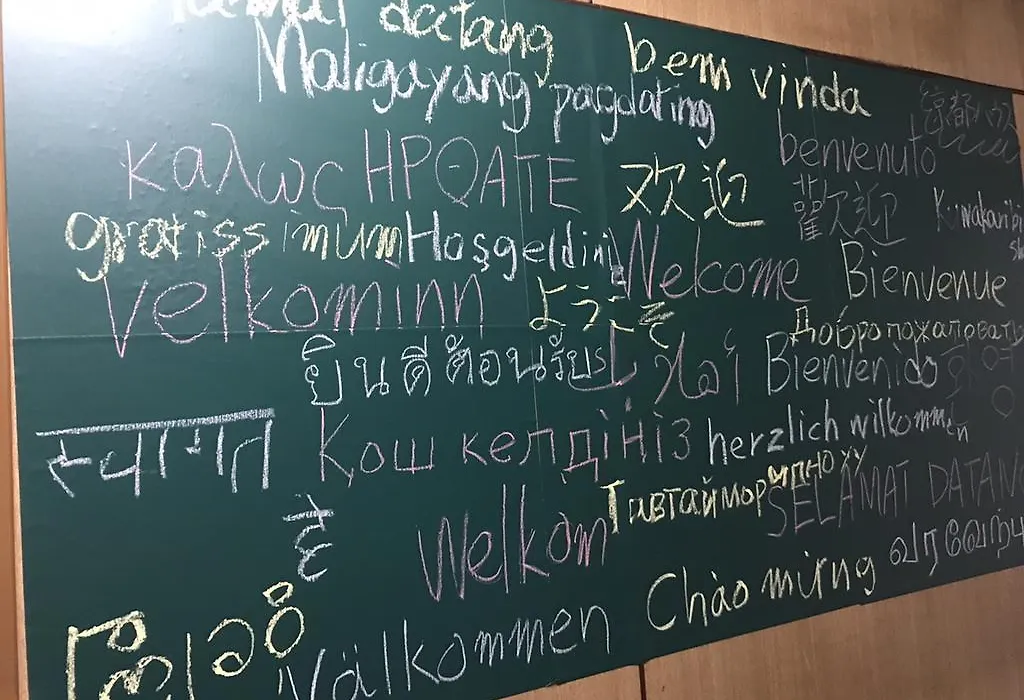 datang
bem vinda
Maligayang pagdating
benvenuto
καλως ΗΡΘΑΤΕ
欢迎
歡迎
gratissimum
Hoşgeldin
Welcome
Bienvenue
Velkominn
ようこそ
Добро пожаловать
ยินดีต้อนรับ
Bienvenido
स्वागत
है
Қош келдіңіз
herzlich wilkommen
Тавтайморилноуу
SELAMAT DATAN
Welkom
Chào mừng
Välkommen